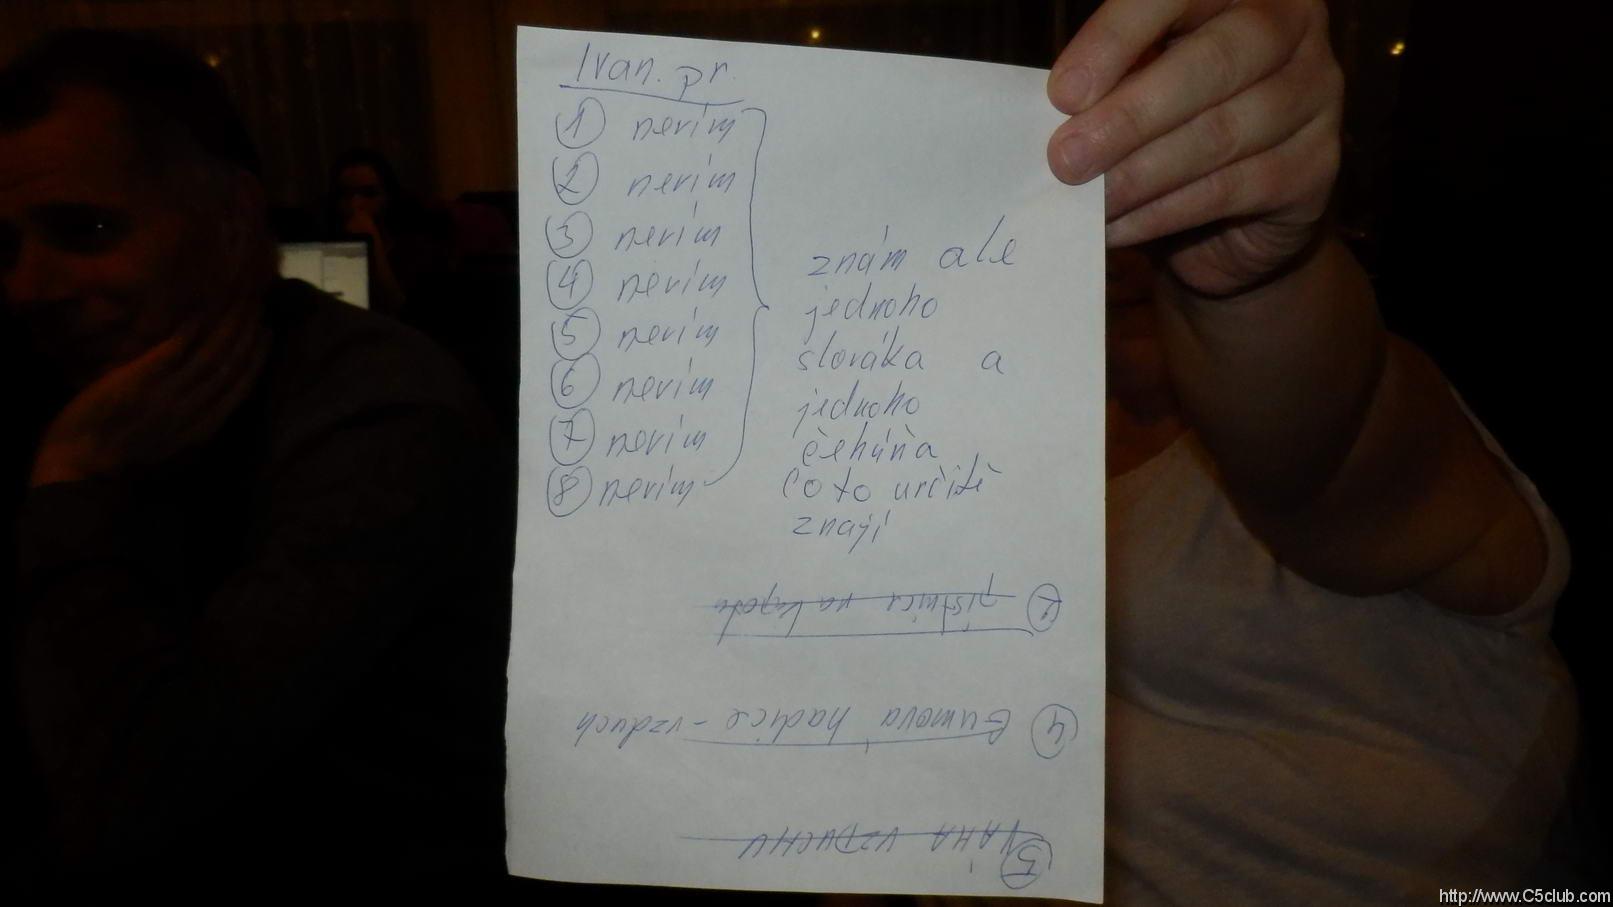 Ivan. pr.
1 nevím
2 nevím
3 nevím
4 nevím
5 nevím
6 nevím
7 nevím
8 nevím
znám ale
jednoho
slováka a
jednoho
čehúňa
co to určitě
znají
2 na kapotu
4 Gumová hadice - vzduch
5 VÁHA VZDUCHU
http://www.C5club.com